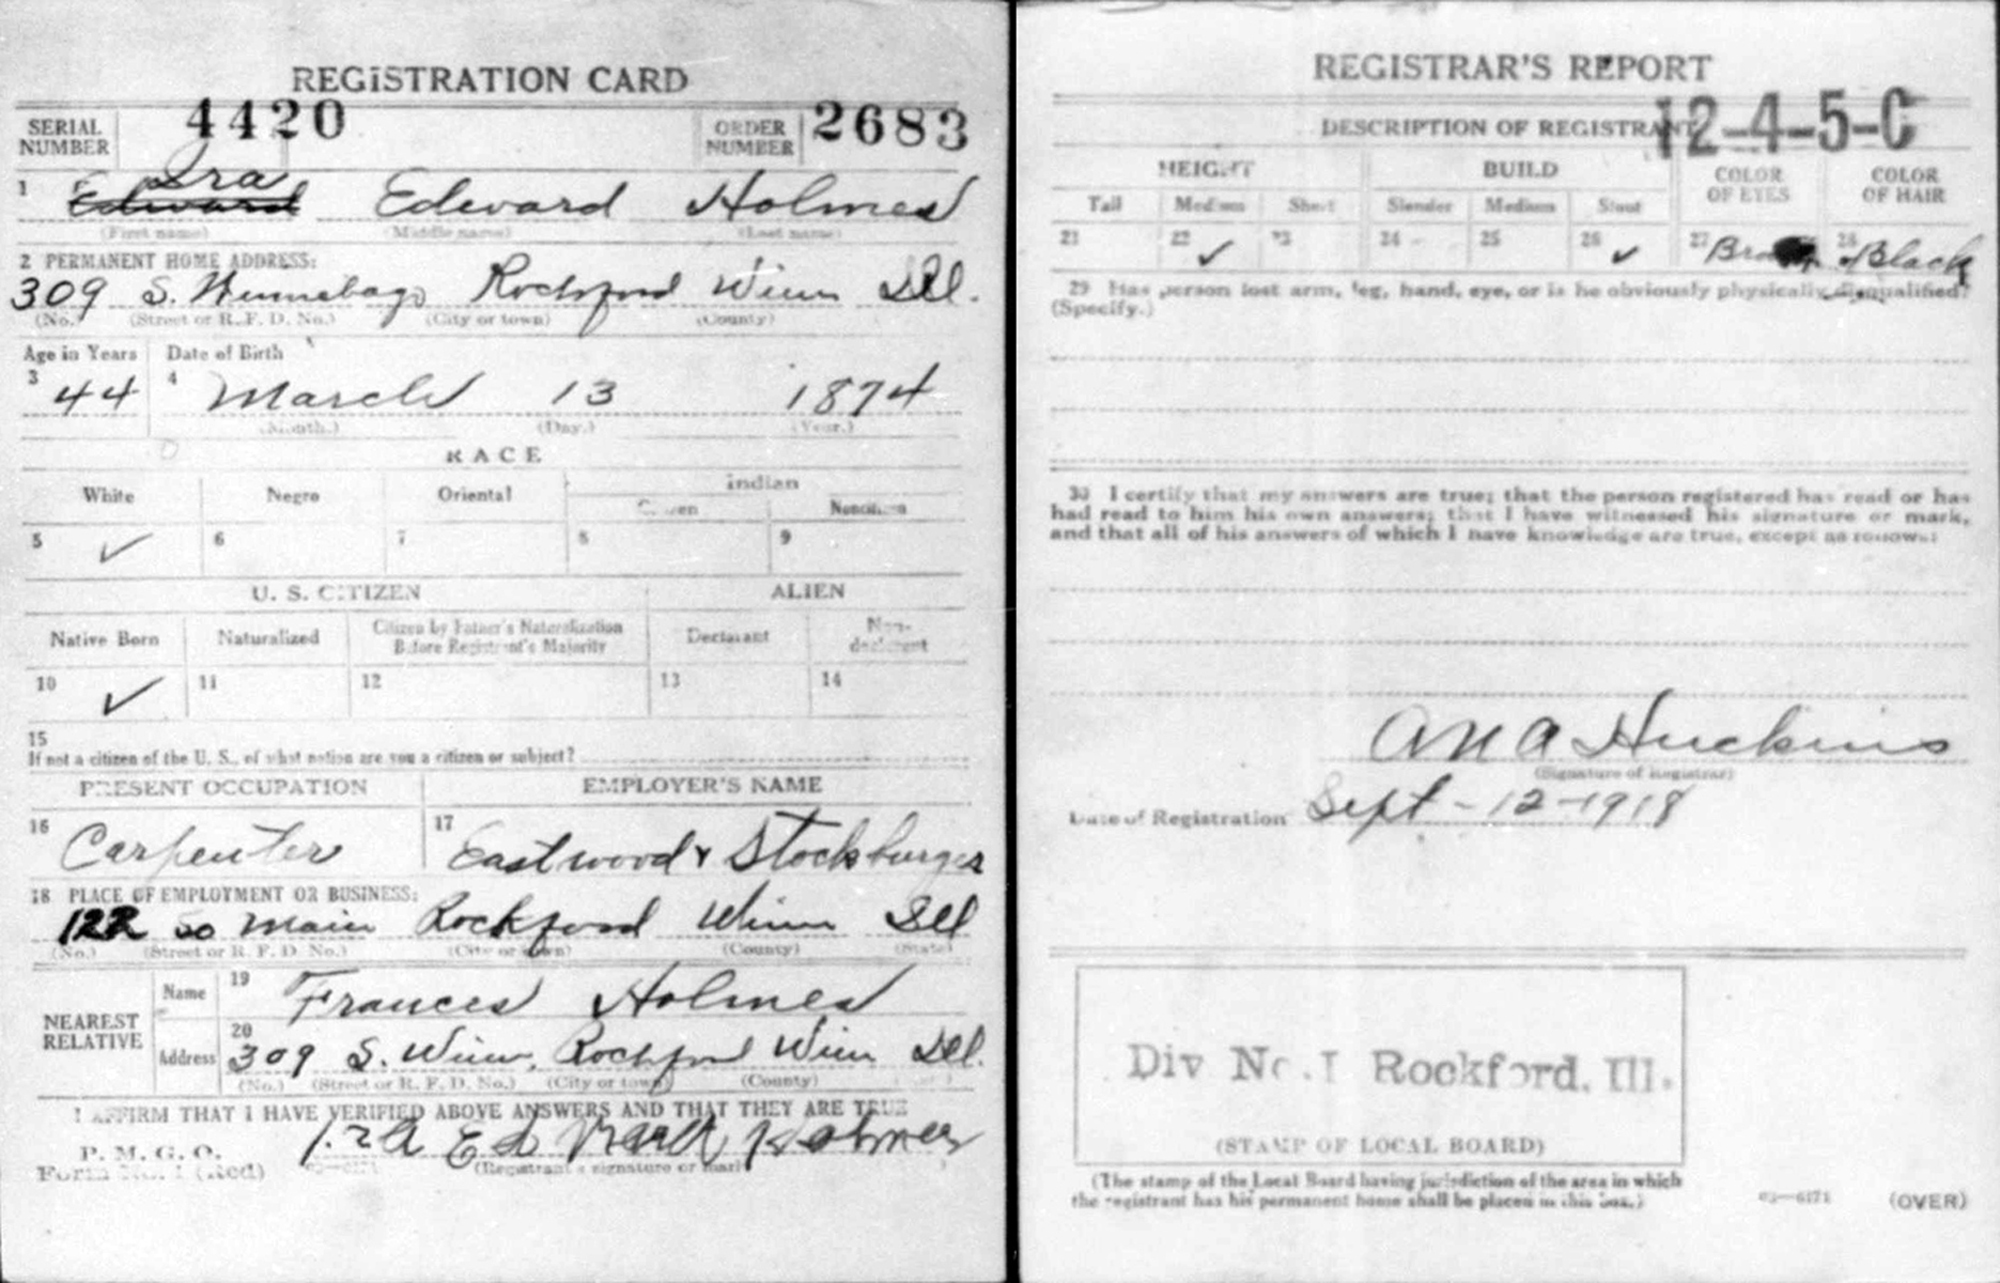 REGISTRATION CARD
SERIAL NUMBER 4420 ORDER NUMBER 2683
Ira
1 Edward Edward Holmes
(First name) (Middle name) (Last name)
2 PERMANENT HOME ADDRESS:
309 S. Winnebago Rockford Winn Ill.
(No.) (Street or R. F. D. No.) (City or town) (County)
Age in Years Date of Birth
3 44 4 March 13 1874
(Month.) (Day.) (Year.)
RACE
White Negro Oriental Indian
Citizen Noncitizen
5 ✓ 6 7 8 9
U. S. CITIZEN ALIEN
Native Born Naturalized Citizen by Father's Naturalization Before Registrant's Majority Declarant Non-declarant
10 ✓ 11 12 13 14
15
If not a citizen of the U. S., of what nation are you a citizen or subject?
PRESENT OCCUPATION EMPLOYER'S NAME
16 Carpenter 17 Eastwood & Stockburger
18 PLACE OF EMPLOYMENT OR BUSINESS:
122 So Main Rockford Winn Ill
(No.) (Street or R. F. D. No.) (City or town) (County) (State)
NEAREST RELATIVE Name 19 Frances Holmes
Address 20 309 S. Winn, Rockford Winn Ill.
(No.) (Street or R. F. D. No.) (City or town) (County)
I AFFIRM THAT I HAVE VERIFIED ABOVE ANSWERS AND THAT THEY ARE TRUE
P. M. G. O.
Form No. 1 (Red) 03—6171 Ira Edward Holmes
(Registrant's signature or mark)
REGISTRAR'S REPORT
12-4-5-C
DESCRIPTION OF REGISTRANT
HEIGHT BUILD COLOR OF EYES COLOR OF HAIR
Tall Medium Short Slender Medium Stout
21 22 ✓ 23 24 25 26 ✓ 27 Brown 28 Black
29 Has person lost arm, leg, hand, eye, or is he obviously physically disqualified?
(Specify.)
30 I certify that my answers are true; that the person registered has read or has
had read to him his own answers; that I have witnessed his signature or mark,
and that all of his answers of which I have knowledge are true, except as follows:
Huckins
(Signature of Registrar)
Date of Registration Sept-12-1918
Div No. 1 Rockford, Ill.
(STAMP OF LOCAL BOARD)
(The stamp of the Local Board having jurisdiction of the area in which
the registrant has his permanent home shall be placed in this box.)
03—6171 (OVER)